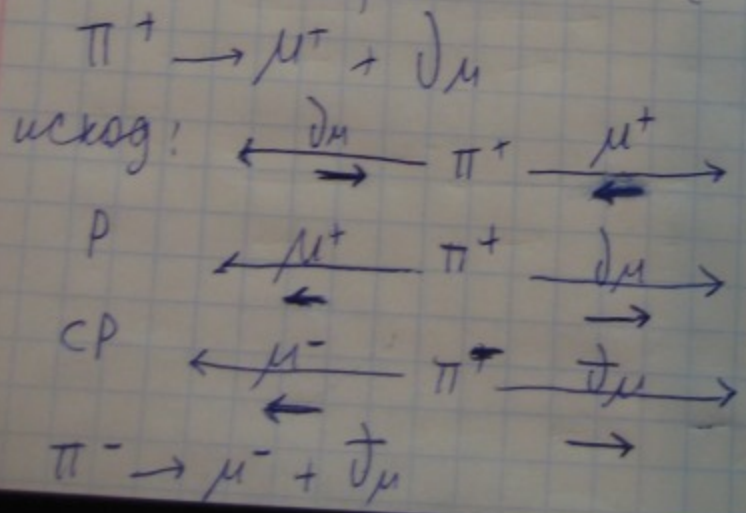 π⁺ → μ⁺ + ν_μ
исход: ν_μ π⁺ μ⁺
P μ⁺ π⁺ ν_μ
CP μ⁻ π⁻ ν̄_μ
π⁻ → μ⁻ + ν̄_μ